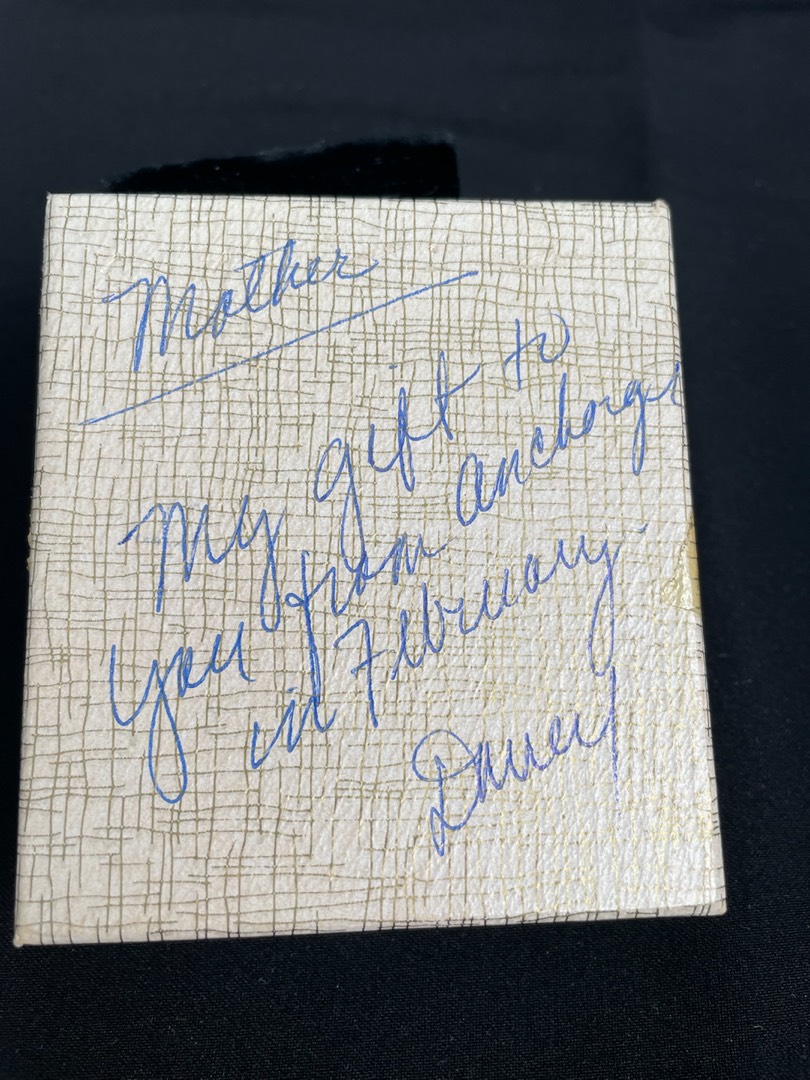 Mother
My gift to
you from anchorage
in February.